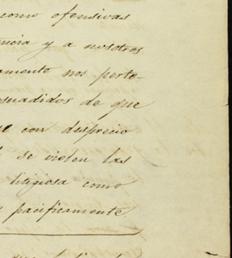 como ofensivas
encia y a nosotros
amente nos perte-
suadidos de que
con desprecio
se visten las
litigiosa como
pacificamente